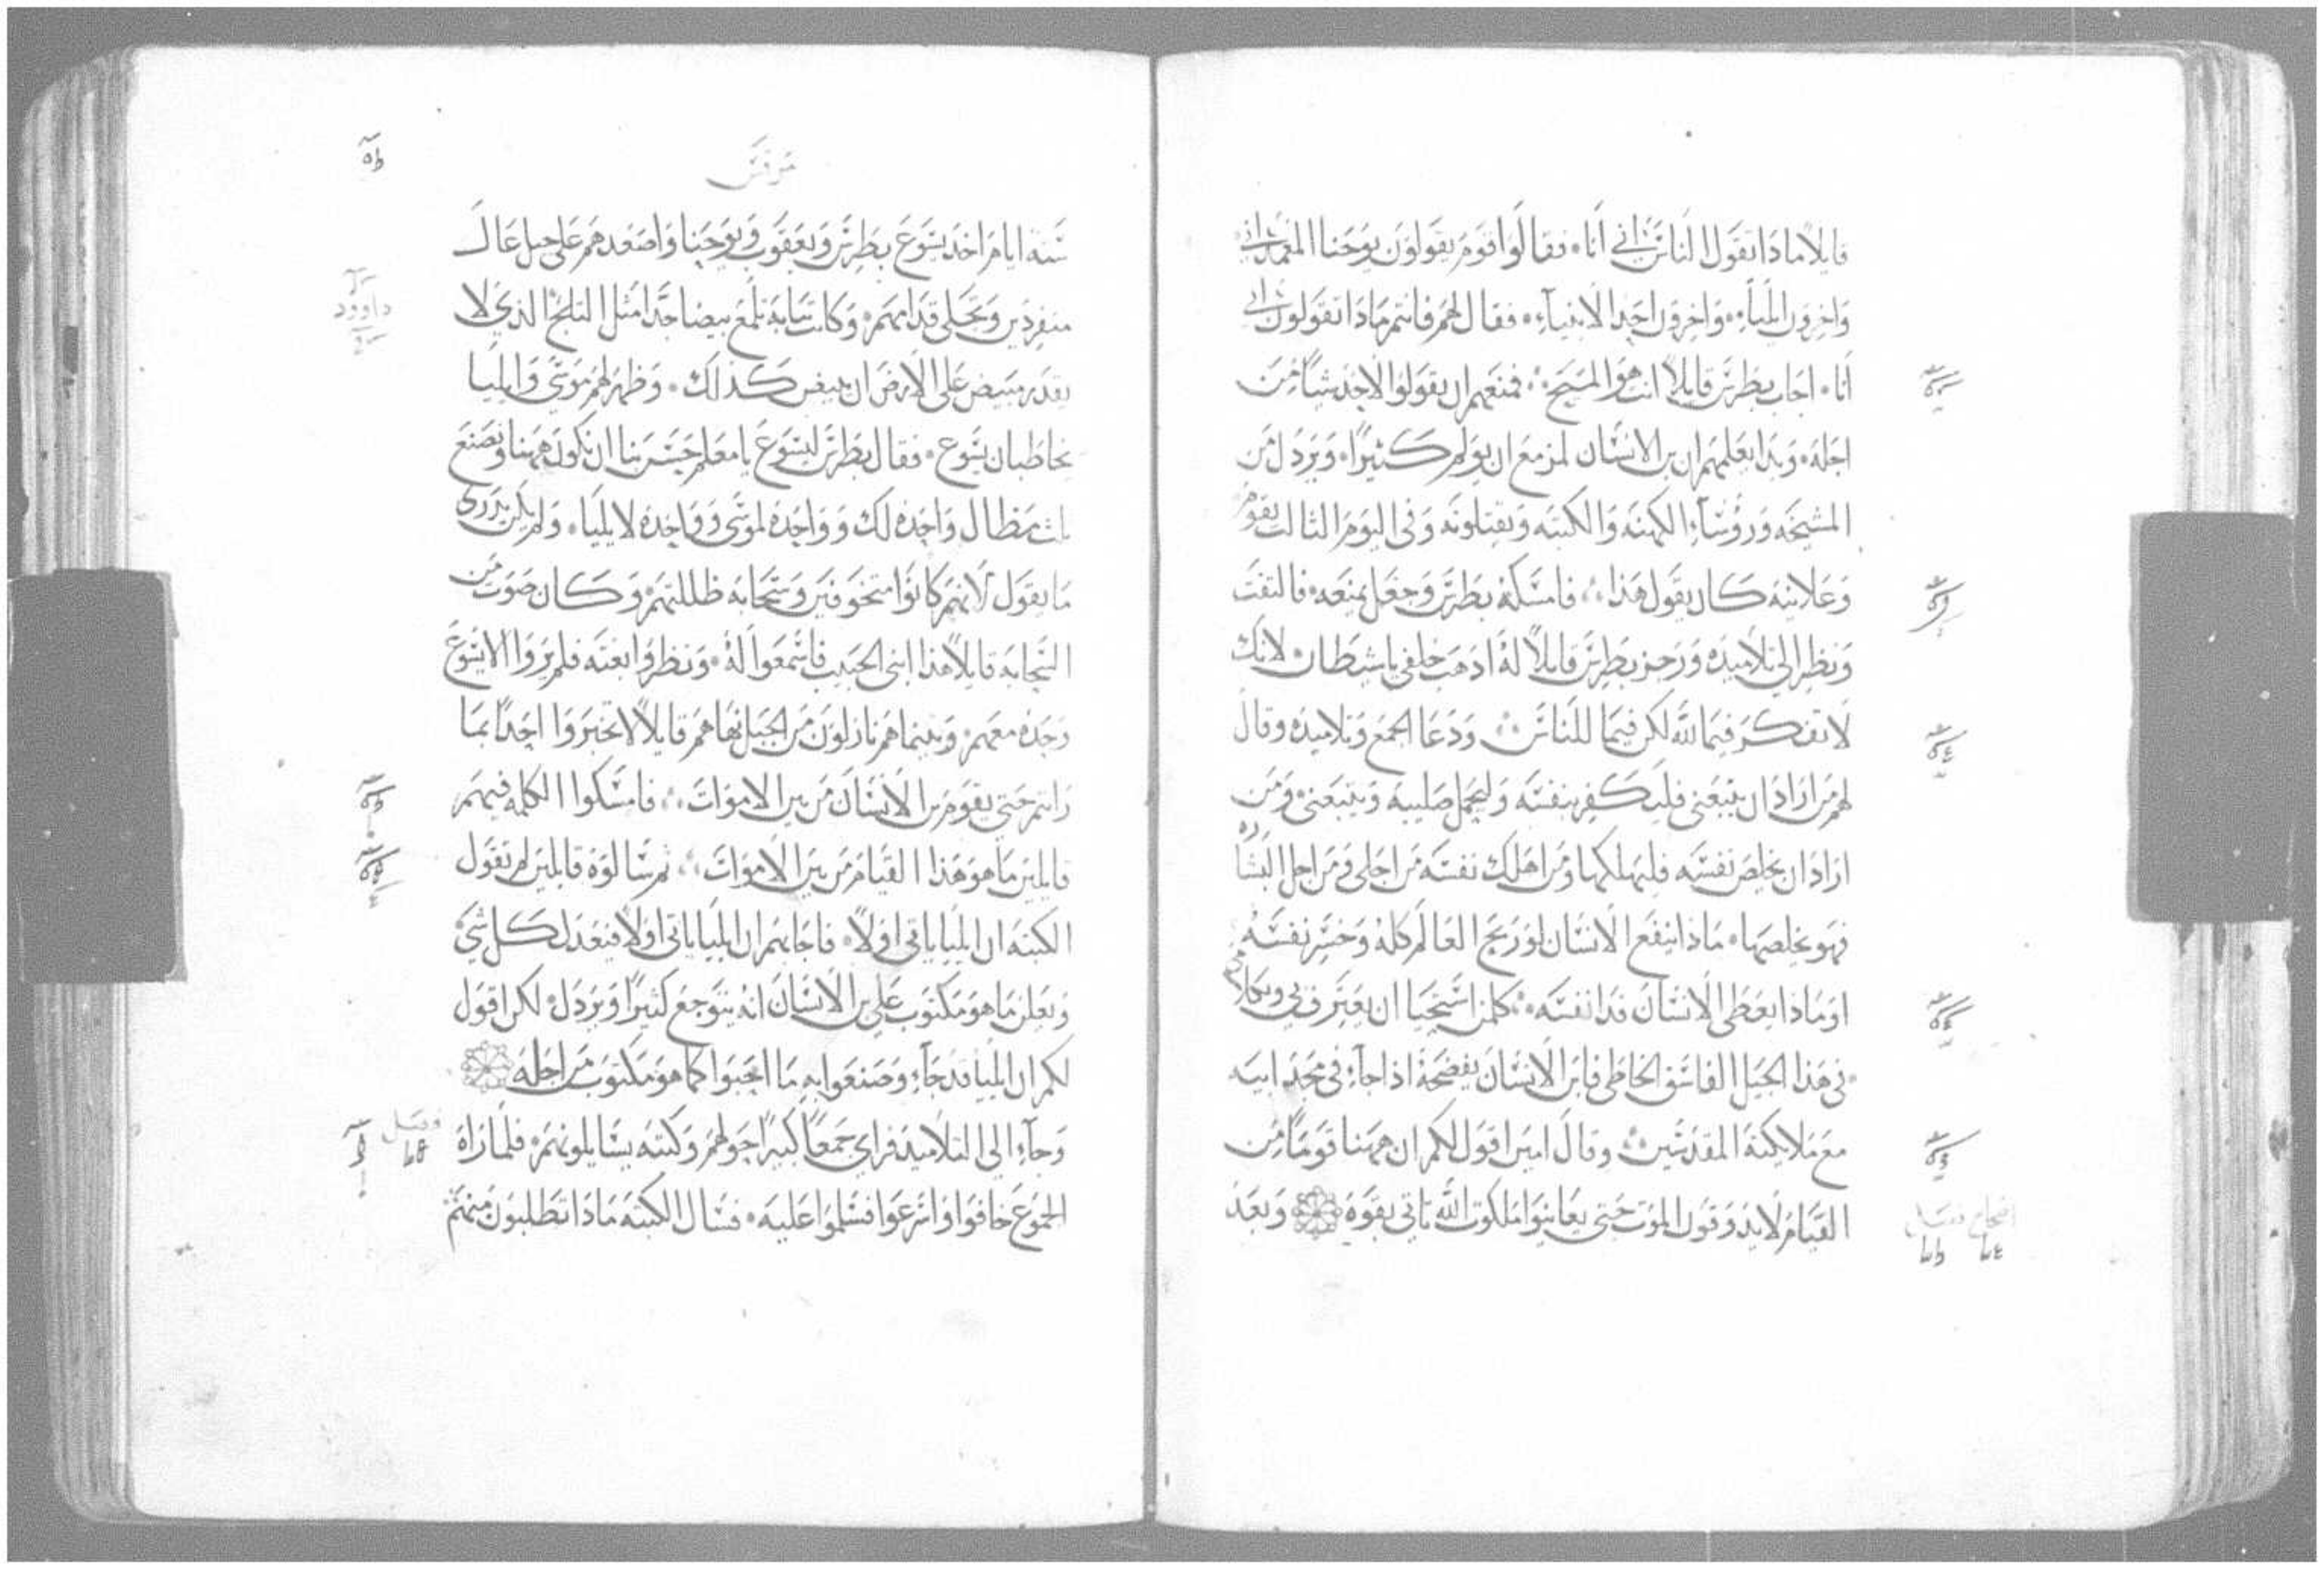 قايلاً ماذا تقول الناس اني انا فقالوا قوم يقولون يوحنا المعمداني
واخرون ايلياء واخرون احد الانبياء فقال لهم فانتم ماذا تقولون اني
انا اجاب بطرس قايلاً انت هو المسيح فمنعهم ان يقولوا لاحد شياً من
اجله وبدا يعلمهم ان بن الانسان لمزمع ان يولم كثيرًا ويرذل من
المشيخه ورؤساء الكهنه والكتبه ويقتلونه وفي اليوم الثالث يقوم
وعلانيه كان يقول هذا فامسكه بطرس وجعل يمنعه فالتفت
ونظر الي تلاميذه وزجر بطرس قايلاً له اذهب خلفي ياشيطان لانك
لا تفكر فيما لله لكن فيما للناس ودعا الجمع وتلاميذه وقال
لهم من اراد ان يتبعني فليكفر بنفسه وليحمل صليبه ويتبعني ومن
اراد ان يخلص نفسه فليهلكها ومن اهلك نفسه من اجلي ومن اجل البشاره
فهو يخلصها ماذا ينفع الانسان لو ربح العالم كله وخسر نفسه
او ماذا يعطي الانسان فدا نفسه كلمن استحيا ان يعترف بي وبكلامي
في هذا الجيل الفاسق الخاطي فابن الانسان يفضحه اذا جاء في مجد ابيه
مع ملايكته المقدسين وقال امين اقول لكم ان ههنا قومًا من
القيام لا يذوقون الموت حتي يعاينوا ملكوت الله تاتي بقوه وبعد
اصحاح فصل
مرقس
ستة ايام اخذ يسوع بطرس ويعقوب ويوحنا واصعدهم علي جبل عال
منفردين وتجلي قدامهم وكانت ثيابه تلمع بيضا جدًا مثل الثلج الذي لا
داوود
يقدر مبيض علي الارض ان يبيض كذلك وظهر لهم موسي وايليا
يخاطبان يسوع فقال بطرس ليسوع يا معلم حسن بنا ان نكون ههنا ونصنع
ثلث مظال واحده لك وواحده لموسي وواحده لايليا ولم يكن يدري
ما يقول لانهم كانوا متخوفين وسحابه ظللتهم وكان صوت من
السحابه قايلاً هذا ابني الحبيب فاسمعوا له ونظروا بغته فلم يروا الا يسوع
وحده معهم وبينما هم نازلون من الجبل نهاهم قايلاً لا تخبروا احدًا بما
رايتم حتي يقوم بن الانسان من بين الاموات فامسكوا الكلمه فيهم
قايلين ما هو هذا القيام من بين الاموات ثم سالوه قايلين لم تقول
الكتبه ان ايليا ياتي اولاً فاجابهم ان ايليا ياتي اولاً فيعدل كل شي
ويعلن ما هو مكتوب علي بن الانسان انه يتوجع كثيرًا ويرذل لكن اقول
لكم ان ايليا قد جاء وصنعوا به ما احبوا كما هو مكتوب من اجله
وجاء الي التلاميذ فراي جمعًا كبيرًا حولهم وكتبه يسايلونهم فلما راه
فصل
الجموع خافوا واسرعوا فسلموا عليه فسال الكتبه ماذا تطلبون منهم